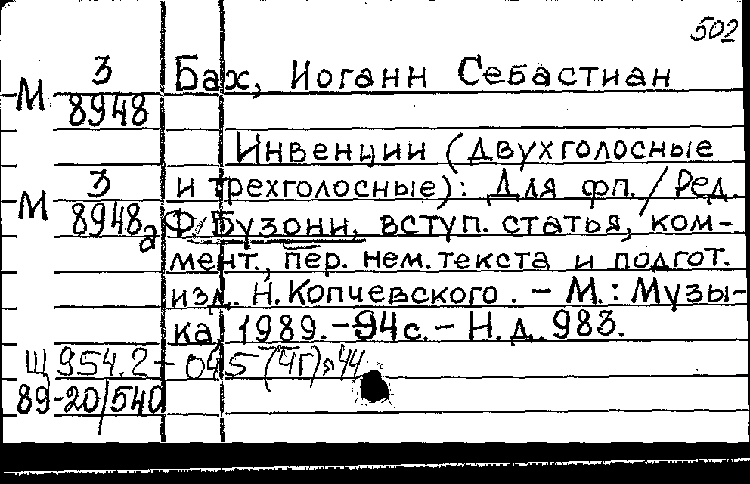 502
М 3/8948 Бах, Иоганн Себастиан
Инвенции (двухголосные
М 3/8948а и трехголосные): Для фп./Ред.
Ф. Бузони, вступ. статья, ком-
мент., пер. нем. текста и подгот.
изд. Н. Копчевского. - М.: Музы-
ка, 1989. - 94 с. - Н.д. 983.
Щ 954.2 - 045 (4Г) я44
89-20/540